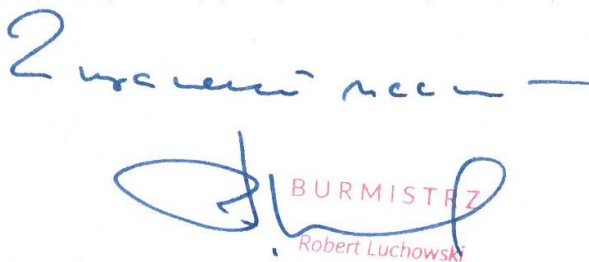 Z wyrazami
BURMISTRZ
Robert Luchowski